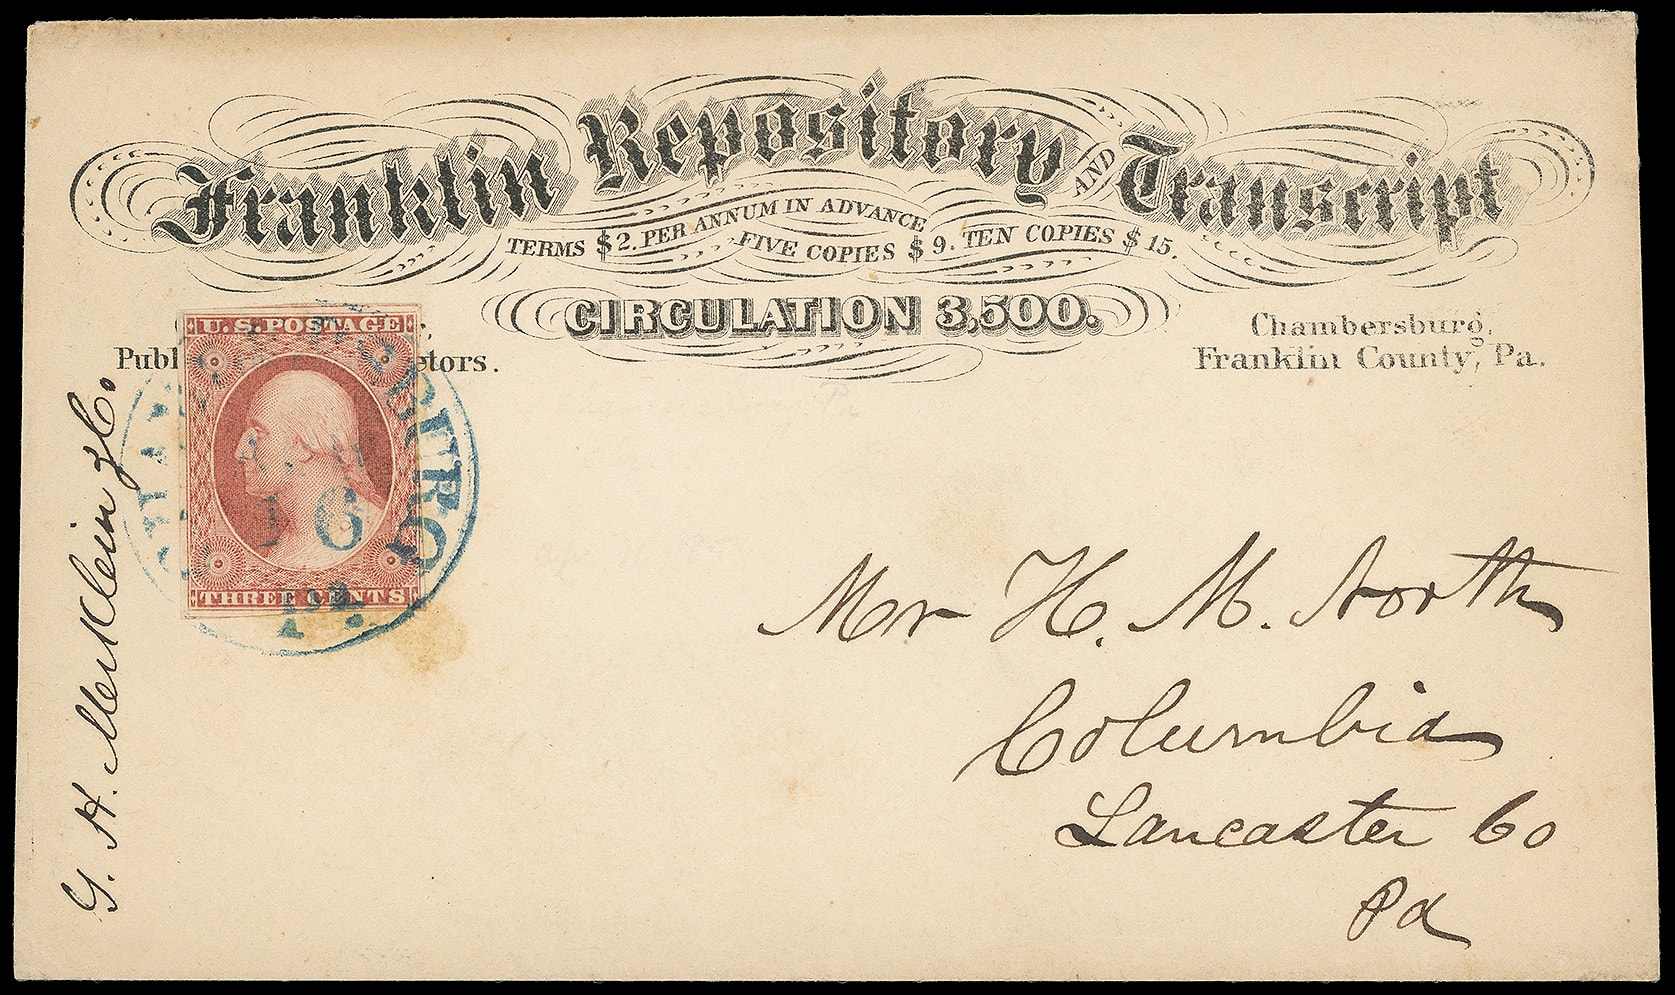 Franklin Repository AND Transcript
TERMS $2. PER ANNUM IN ADVANCE
FIVE COPIES $9. TEN COPIES $15.
CIRCULATION 3,500.
Chambersburg,
Franklin County, Pa.
U.S. POSTAGE
THREE CENTS
16
G. H. Mersklein & Co.
Mr H. M. North
Columbia
Lancaster Co
Pa